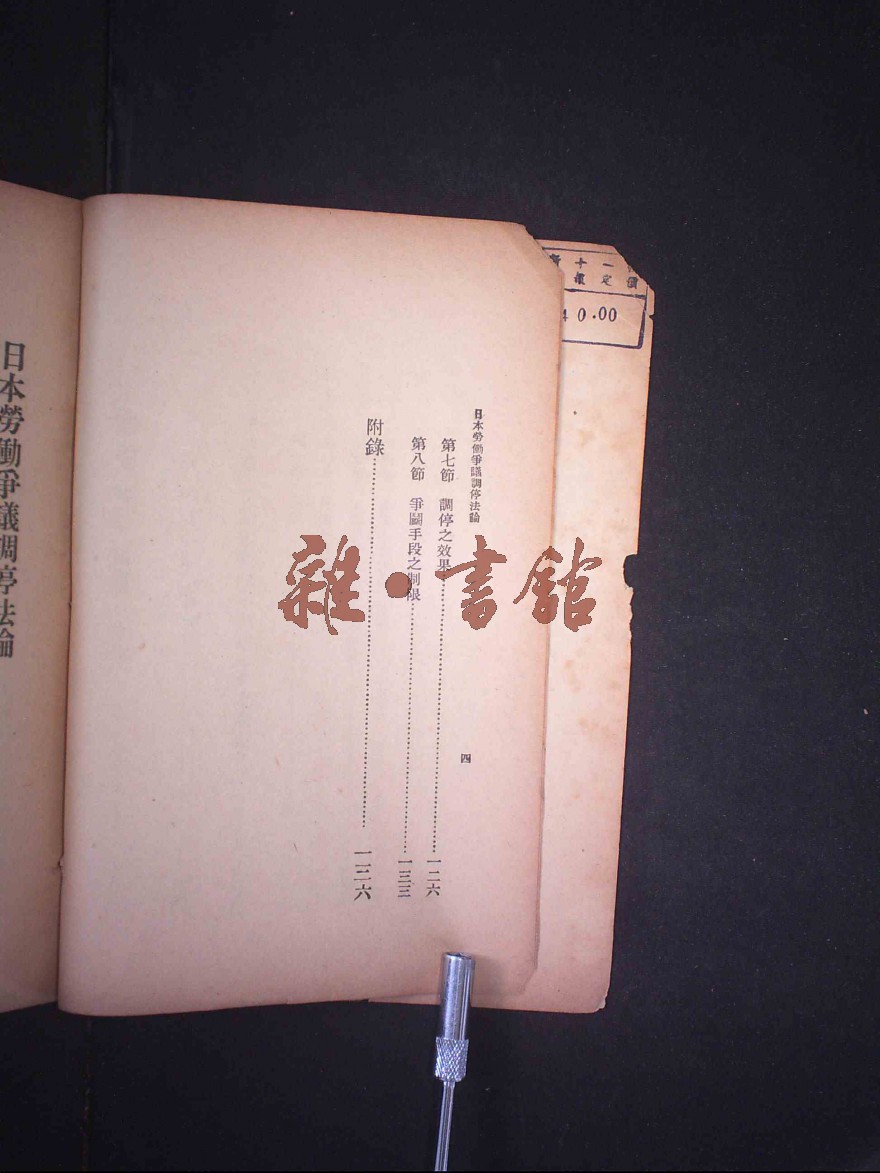 日本勞働爭議調停法論
四
第七節 調停之效果……一二六
第八節 爭鬬手段之制限……一三三
附錄……一三六
日本勞働爭議調停法論
40.00
雜·書館